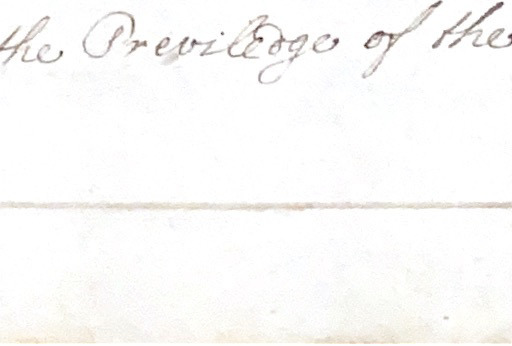 the Previledge of the